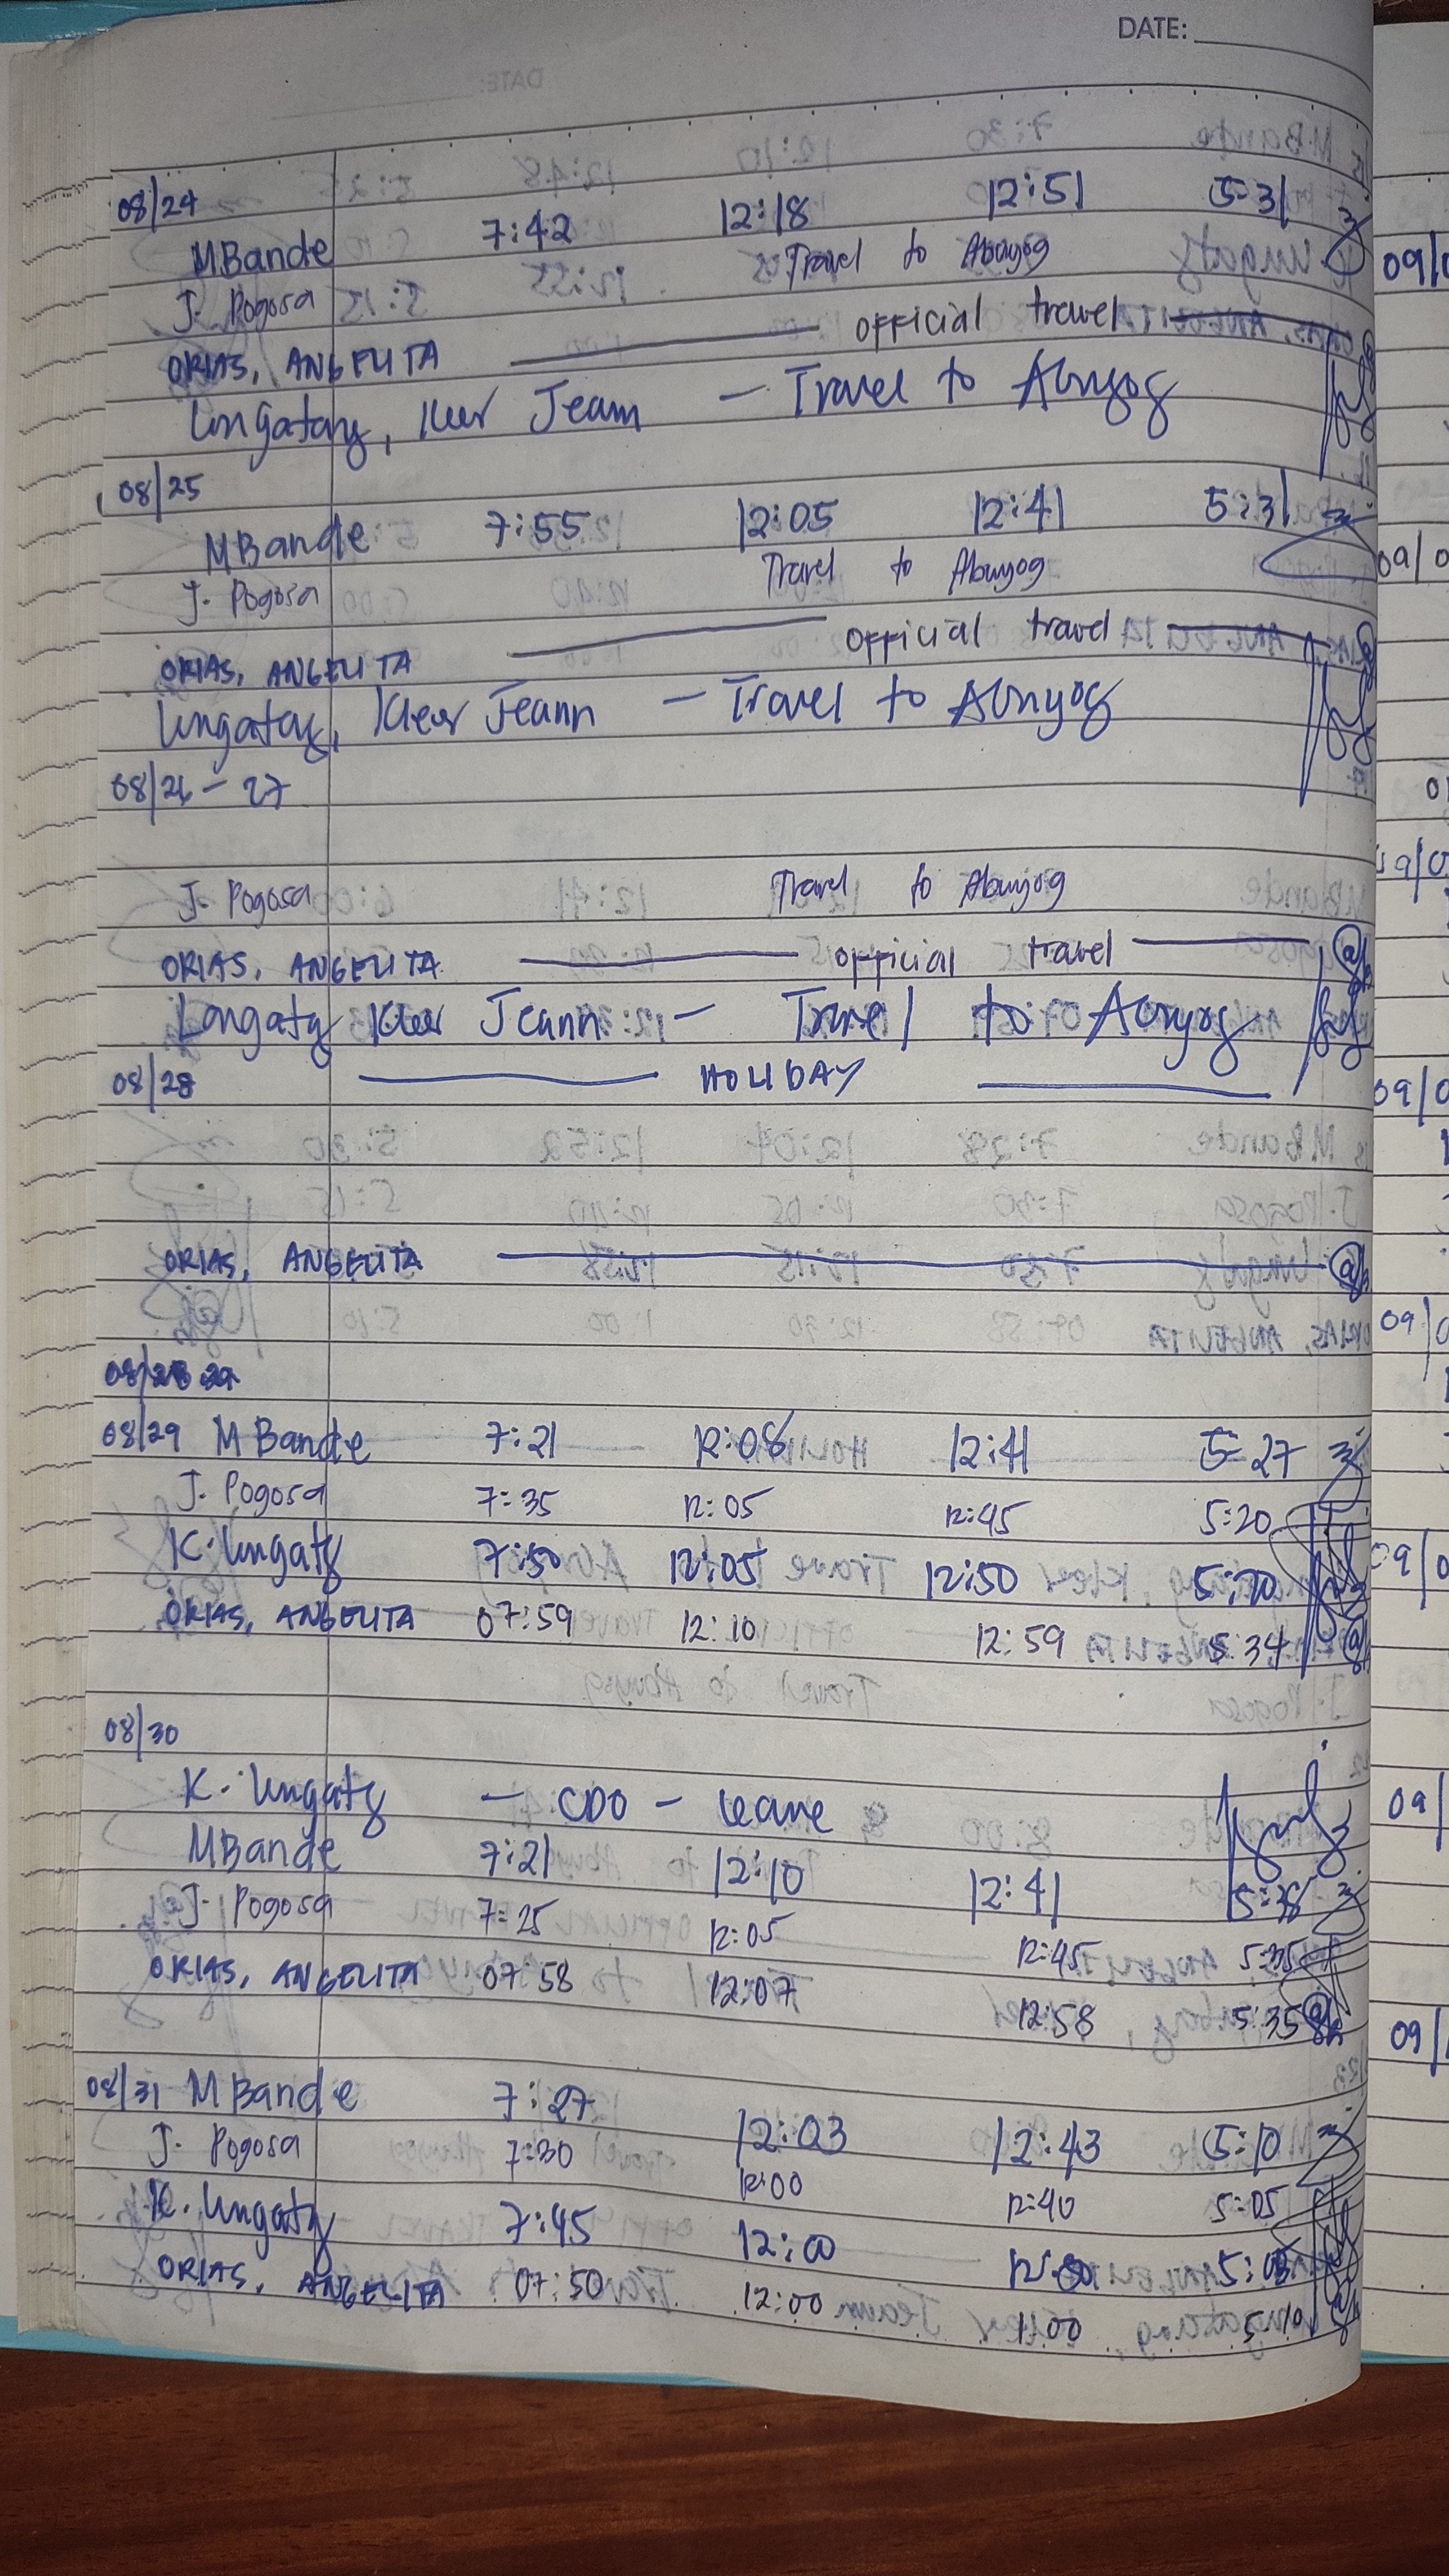 DATE:
08/24
M Bande 7:42 12:18 12:51 5:31
J. Pogosa Travel to Abuyog
ORIAS, ANGELITA official travel
Jeam - Travel to Abuyog
08/25
M Bande 7:55 12:05 12:41 5:31
J. Pogosa Travel to Abuyog
ORIAS, ANGELITA official travel
Jeann - Travel to Abuyog
08/26 - 27
J. Pogosa Travel to Abuyog
ORIAS, ANGELITA official travel
Jeann - Travel to Abuyog
08/28 HOLIDAY
ORIAS, ANGELITA
08/29 M Bande 7:21 12:08 12:41 5:27
J. Pogosa 7:35 12:05 12:45 5:20
K. 7:50 12:05 12:50
ORIAS, ANGELITA 07:59 12:10 12:59 5:34
08/30
K. - CDO - leave
M Bande 7:21 12:10 12:41 5:38
J. Pogosa 7:25 12:05 12:45 5:35
ORIAS, ANGELITA 07:58 12:07 12:58 5:35
08/31 M Bande 7:27 12:03 12:43 5:10
J. Pogosa 7:30 12:00 12:40 5:05
K. 7:45 12:00
ORIAS, ANGELITA 07:50 12:00 1:00 5:10
09/
09/
09/
09/
09/
09/
09/